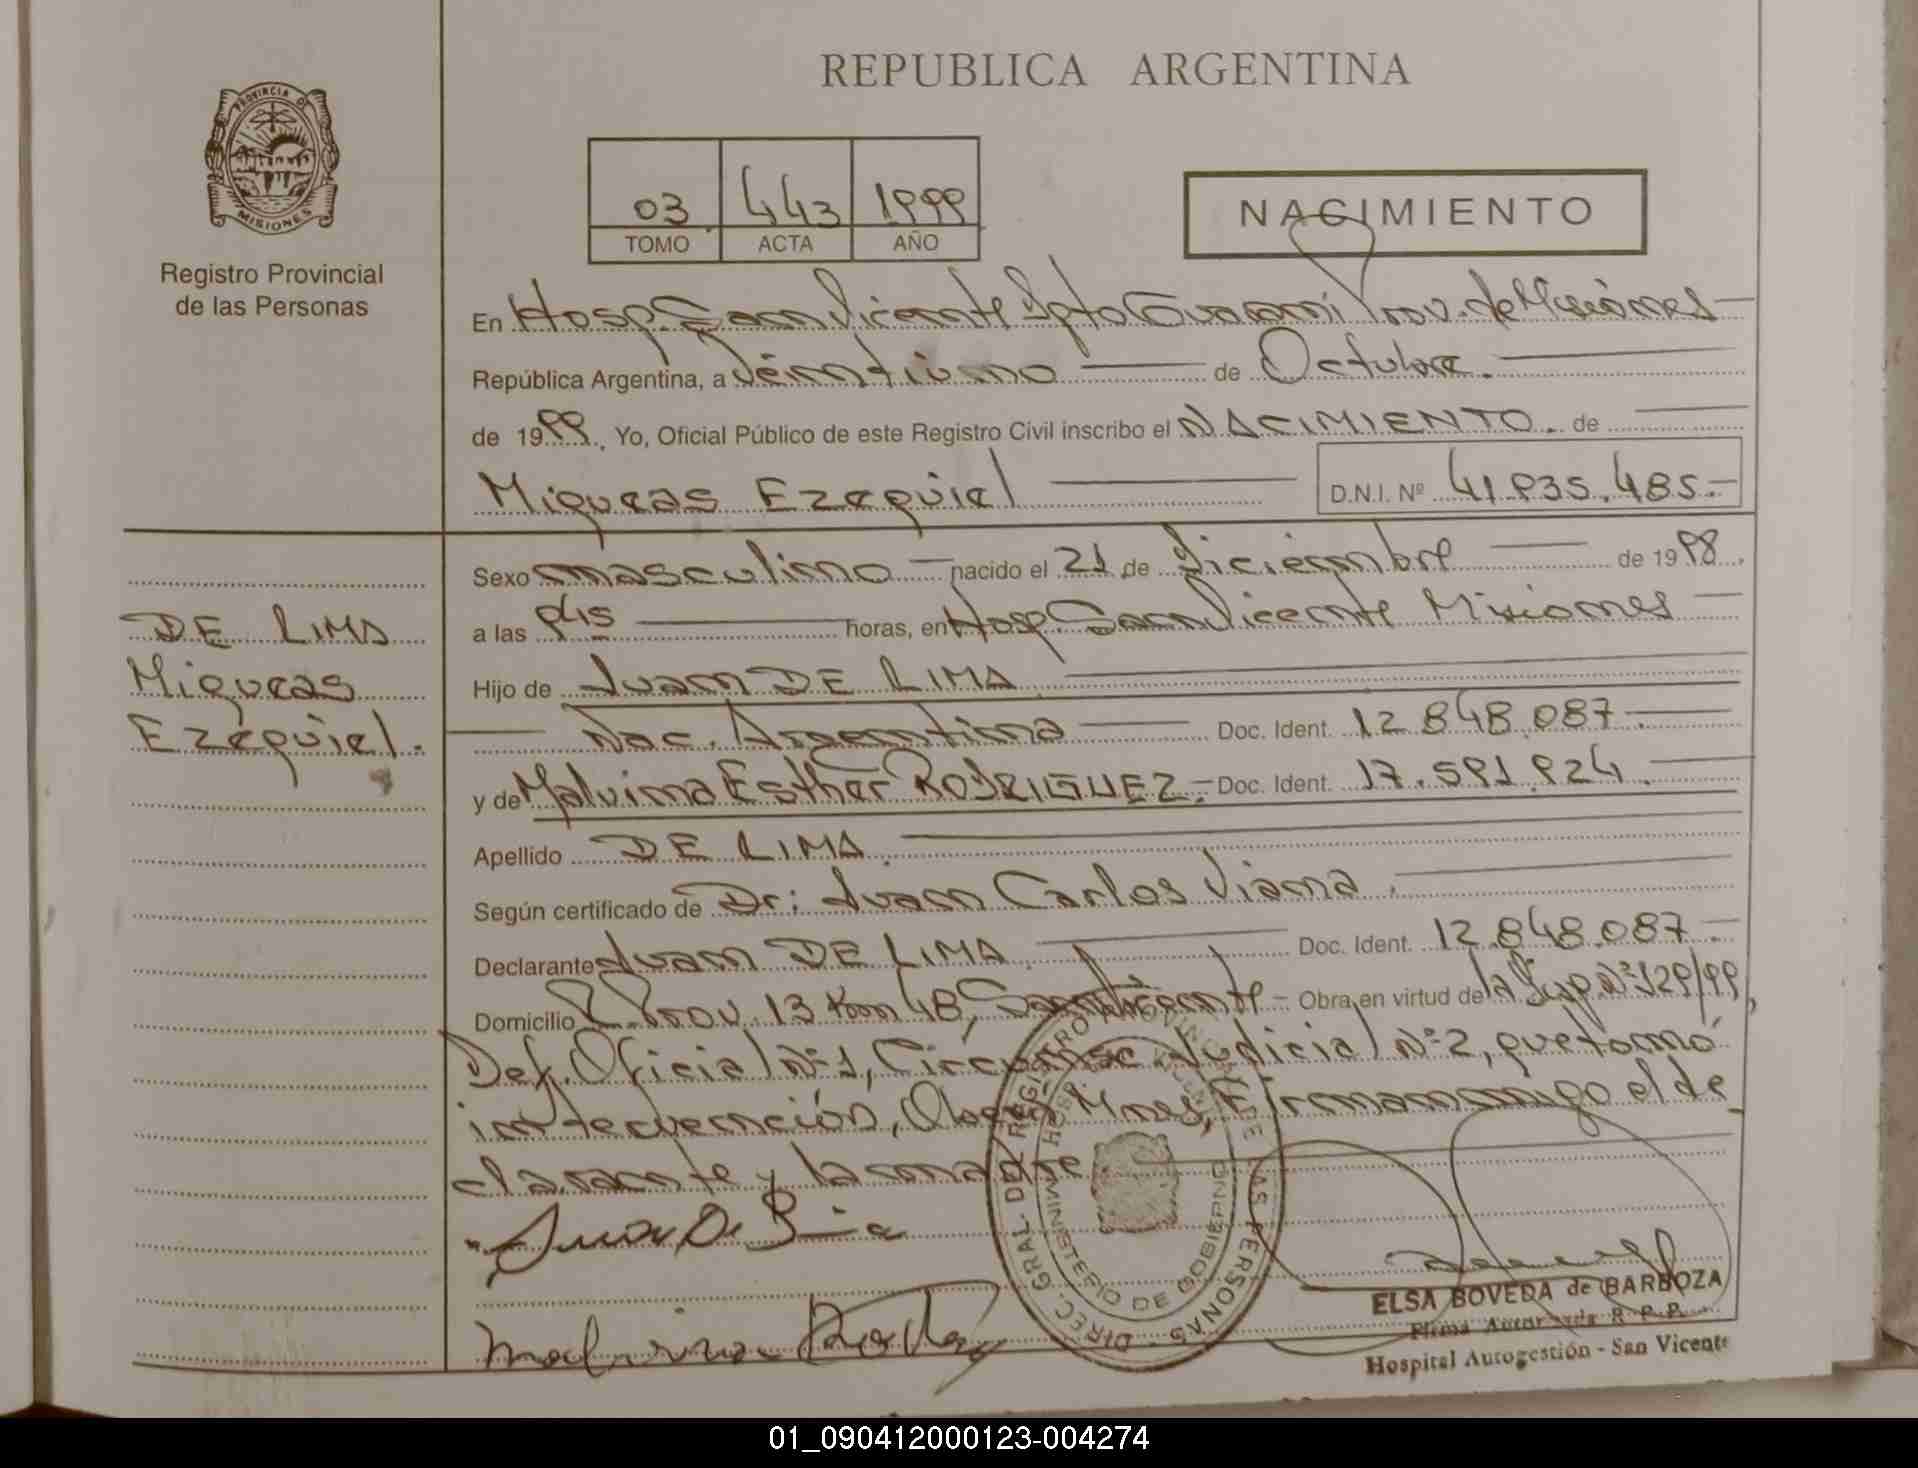 REPUBLICA ARGENTINA
PROVINCIA DE
MISIONES
Registro Provincial
de las Personas
03 443 1999
TOMO ACTA AÑO
NACIMIENTO
En Hosp. San Vicente Dpto Guaraní Prov. de Misiones
República Argentina, a veintiuno de Octubre.
de 1999, Yo, Oficial Público de este Registro Civil inscribo el NACIMIENTO. de
Miqueas Ezequiel D.N.I. Nº 41.935.485.-
Sexo masculino nacido el 21 de Diciembre de 1998
a las 9,45 horas, en Hosp. San Vicente Misiones
Hijo de Juan DE LIMA
Nac. Argentina Doc. Ident. 12.848.087
y de Malvina Esther RODRIGUEZ.- Doc. Ident. 17.591.924
Apellido DE LIMA
Según certificado de Dr: Juan Carlos Viana
Declarante Juan DE LIMA Doc. Ident. 12.848.087
Domicilio R. Prov. 13 Km 48, San Vicente - Obra en virtud de la Disp. Nº 129/99,
Def. Oficial Nº 1, Circunsc. Judicial Nº 2, que tomó
intervención, Oberá Mnes, Firman conmigo el de
clarante y la madre
DE LIMA
Miqueas
Ezequiel.
DIREC. GRAL. DE REGISTRO PROVINCIAL DE LAS PERSONAS
MINISTERIO DE GOBIERNO
ELSA BOVEDA de BARBOZA
Firma Autorizada R.P.P.
Hospital Autogestión - San Vicente
01_090412000123-004274